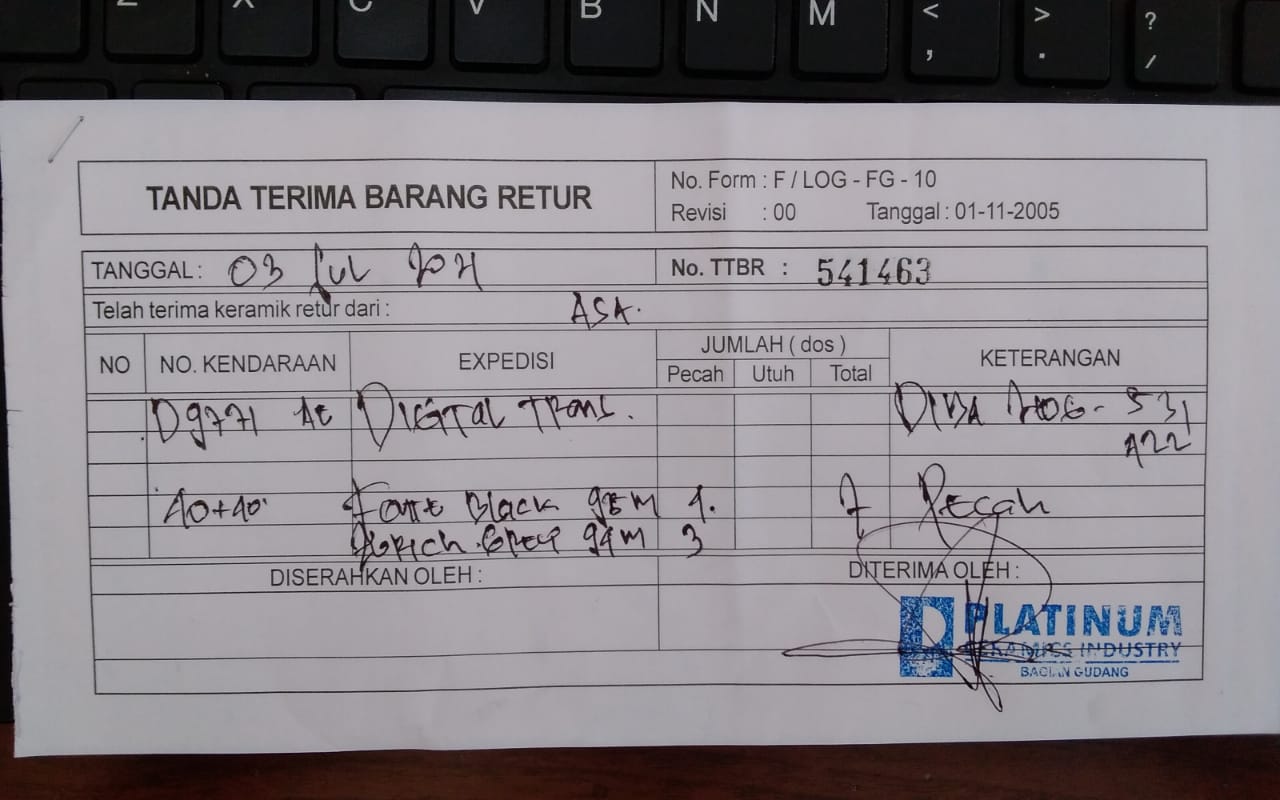 Z X C V B N M < > ?
, . /
TANDA TERIMA BARANG RETUR
No. Form : F / LOG - FG - 10
Revisi : 00 Tanggal : 01-11-2005
TANGGAL : 03 Jul 2021
No. TTBR : 541463
Telah terima keramik retur dari : ASA.
NO NO. KENDARAAN EXPEDISI JUMLAH ( dos ) KETERANGAN
Pecah Utuh Total
D9771 AE DIGITAL TRANS. 531
A22
40+40 Black 4. 7 Pecah
Grey 3
DISERAHKAN OLEH : DITERIMA OLEH :
PLATINUM
KERAMICS INDUSTRY
BAGIAN GUDANG